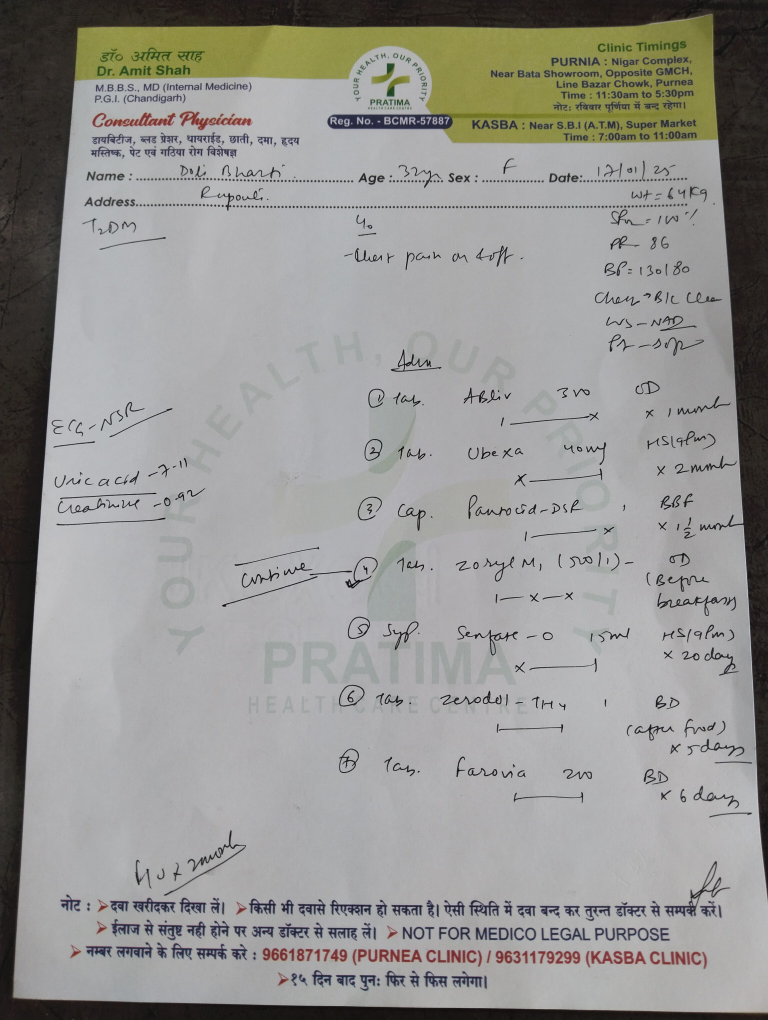 डॉ० अमित साह
Dr. Amit Shah
M.B.B.S., MD (Internal Medicine)
P.G.I. (Chandigarh)
Consultant Physician
डायबिटीज, ब्लड प्रेशर, थायराईड, छाती, दमा, हृदय
मस्तिष्क, पेट एवं गठिया रोग विशेषज्ञ
YOUR HEALTH, OUR PRIORITY
PRATIMA
HEALTH CARE CENTRE
Reg. No. - BCMR-57887
Clinic Timings
PURNIA : Nigar Complex,
Near Bata Showroom, Opposite GMCH,
Line Bazar Chowk, Purnea
Time : 11:30am to 5:30pm
नोट: रविवार पूर्णिया में बन्द रहेगा।
KASBA : Near S.B.I (A.T.M), Super Market
Time : 7:00am to 11:00am
Name : Bharti Age : 32yr Sex : F Date: 17/01/25
Address Rupouli
Wt = 64Kg
T2DM
- Chest pain on & off.
PR - 86
BP = 130/80
ECG - NSR
Uric acid - 7.11
Creatinine - 0.92
Adv
① Tab. ABliv 300 OD
x 1 month
② Tab. Ubexa 40mg HS(9pm)
x 2 month
③ Cap. Pantocid-DSR 1 BBF
x 1 1/2 month
Continue
④ Tab. Zoryl M1 (500/1) - OD
(Before breakfast)
⑤ Syp. 15ml HS(9pm)
x 20 days
⑥ Tab. Zerodol - TH4 1 BD
(after food)
x 5 days
⑦ Tab. Farovia 200 BD
x 6 days
YOUR HEALTH, OUR PRIORITY
PRATIMA
HEALTH CARE CENTRE
नोट : ➤ दवा खरीदकर दिखा लें। ➤ किसी भी दवासे रिएक्शन हो सकता है। ऐसी स्थिति में दवा बन्द कर तुरन्त डॉक्टर से सम्पर्क करें।
➤ ईलाज से संतुष्ट नही होने पर अन्य डॉक्टर से सलाह लें। ➤ NOT FOR MEDICO LEGAL PURPOSE
➤ नम्बर लगवाने के लिए सम्पर्क करे : 9661871749 (PURNEA CLINIC) / 9631179299 (KASBA CLINIC)
➤ १५ दिन बाद पुन: फिर से फिस लगेगा।